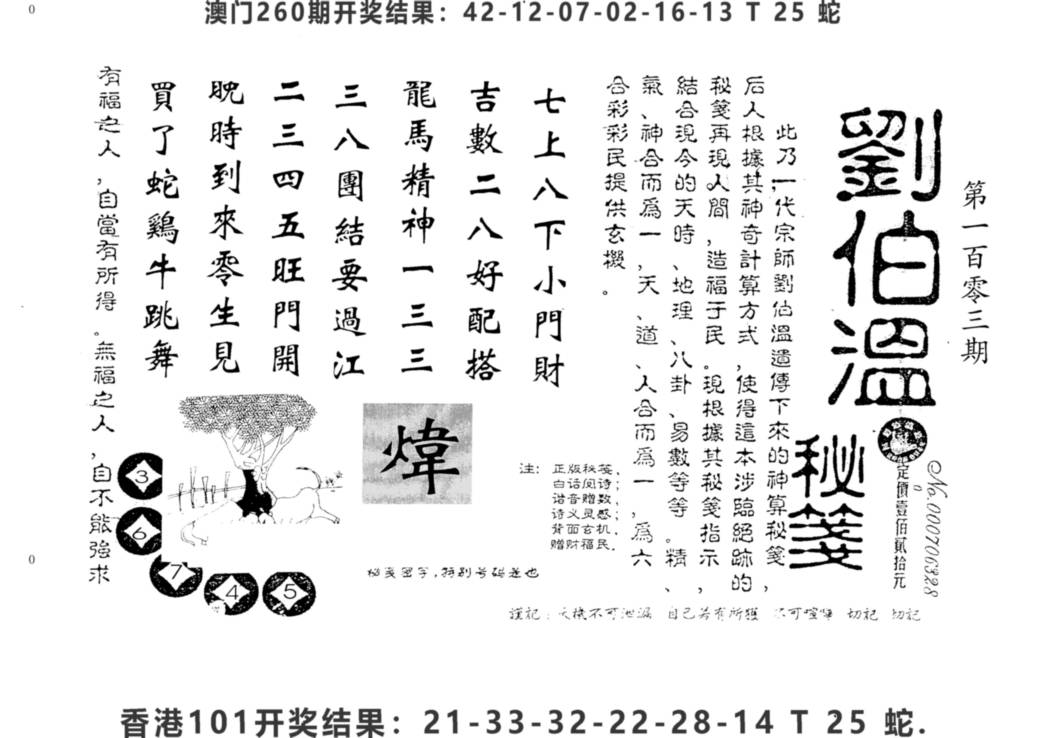 澳门260期开奖结果：42-12-07-02-16-13 T 25 蛇
第一百零三期
劉伯溫
秘箋
No.000706328
定價壹佰貳拾元
此乃一代宗師劉伯溫遺傳下來的神算秘箋，
后人根據其神奇計算方式，使得這本涉臨絕跡的
秘箋再現人間，造福于民。現根據其秘箋指示，
結合現今的天時、地理、八卦、易數等等。精、
氣、神合而爲一，天、道、人合而爲一，爲六
合彩彩民提供玄機。
七上八下小門財
吉數二八好配搭
龍馬精神一三三
三八團結要過江
二三四五旺門開
晚時到來零生見
買了蛇鷄牛跳舞
有福之人，自當有所得。無福之人，自不能強求
煒
注：正版秘笺，
白话阅诗；
谐音赠数，
诗义灵感；
背面玄机，
赠财福民。
3
6
7
4
5
秘笺密字，特别号码差也
謹記：天機不可泄漏 自己若有所獲 不可喧嘩 切記 切記
香港101开奖结果：21-33-32-22-28-14 T 25 蛇.
0
0